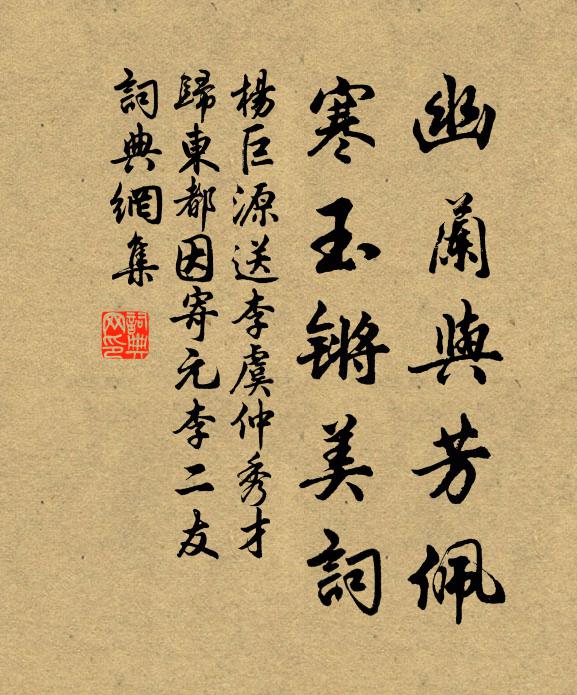 幽蘭與芳佩
寒玉鏘美詞
楊巨源送李虞仲秀才
歸東都因寄元李二友
詞典網集
詞典網印